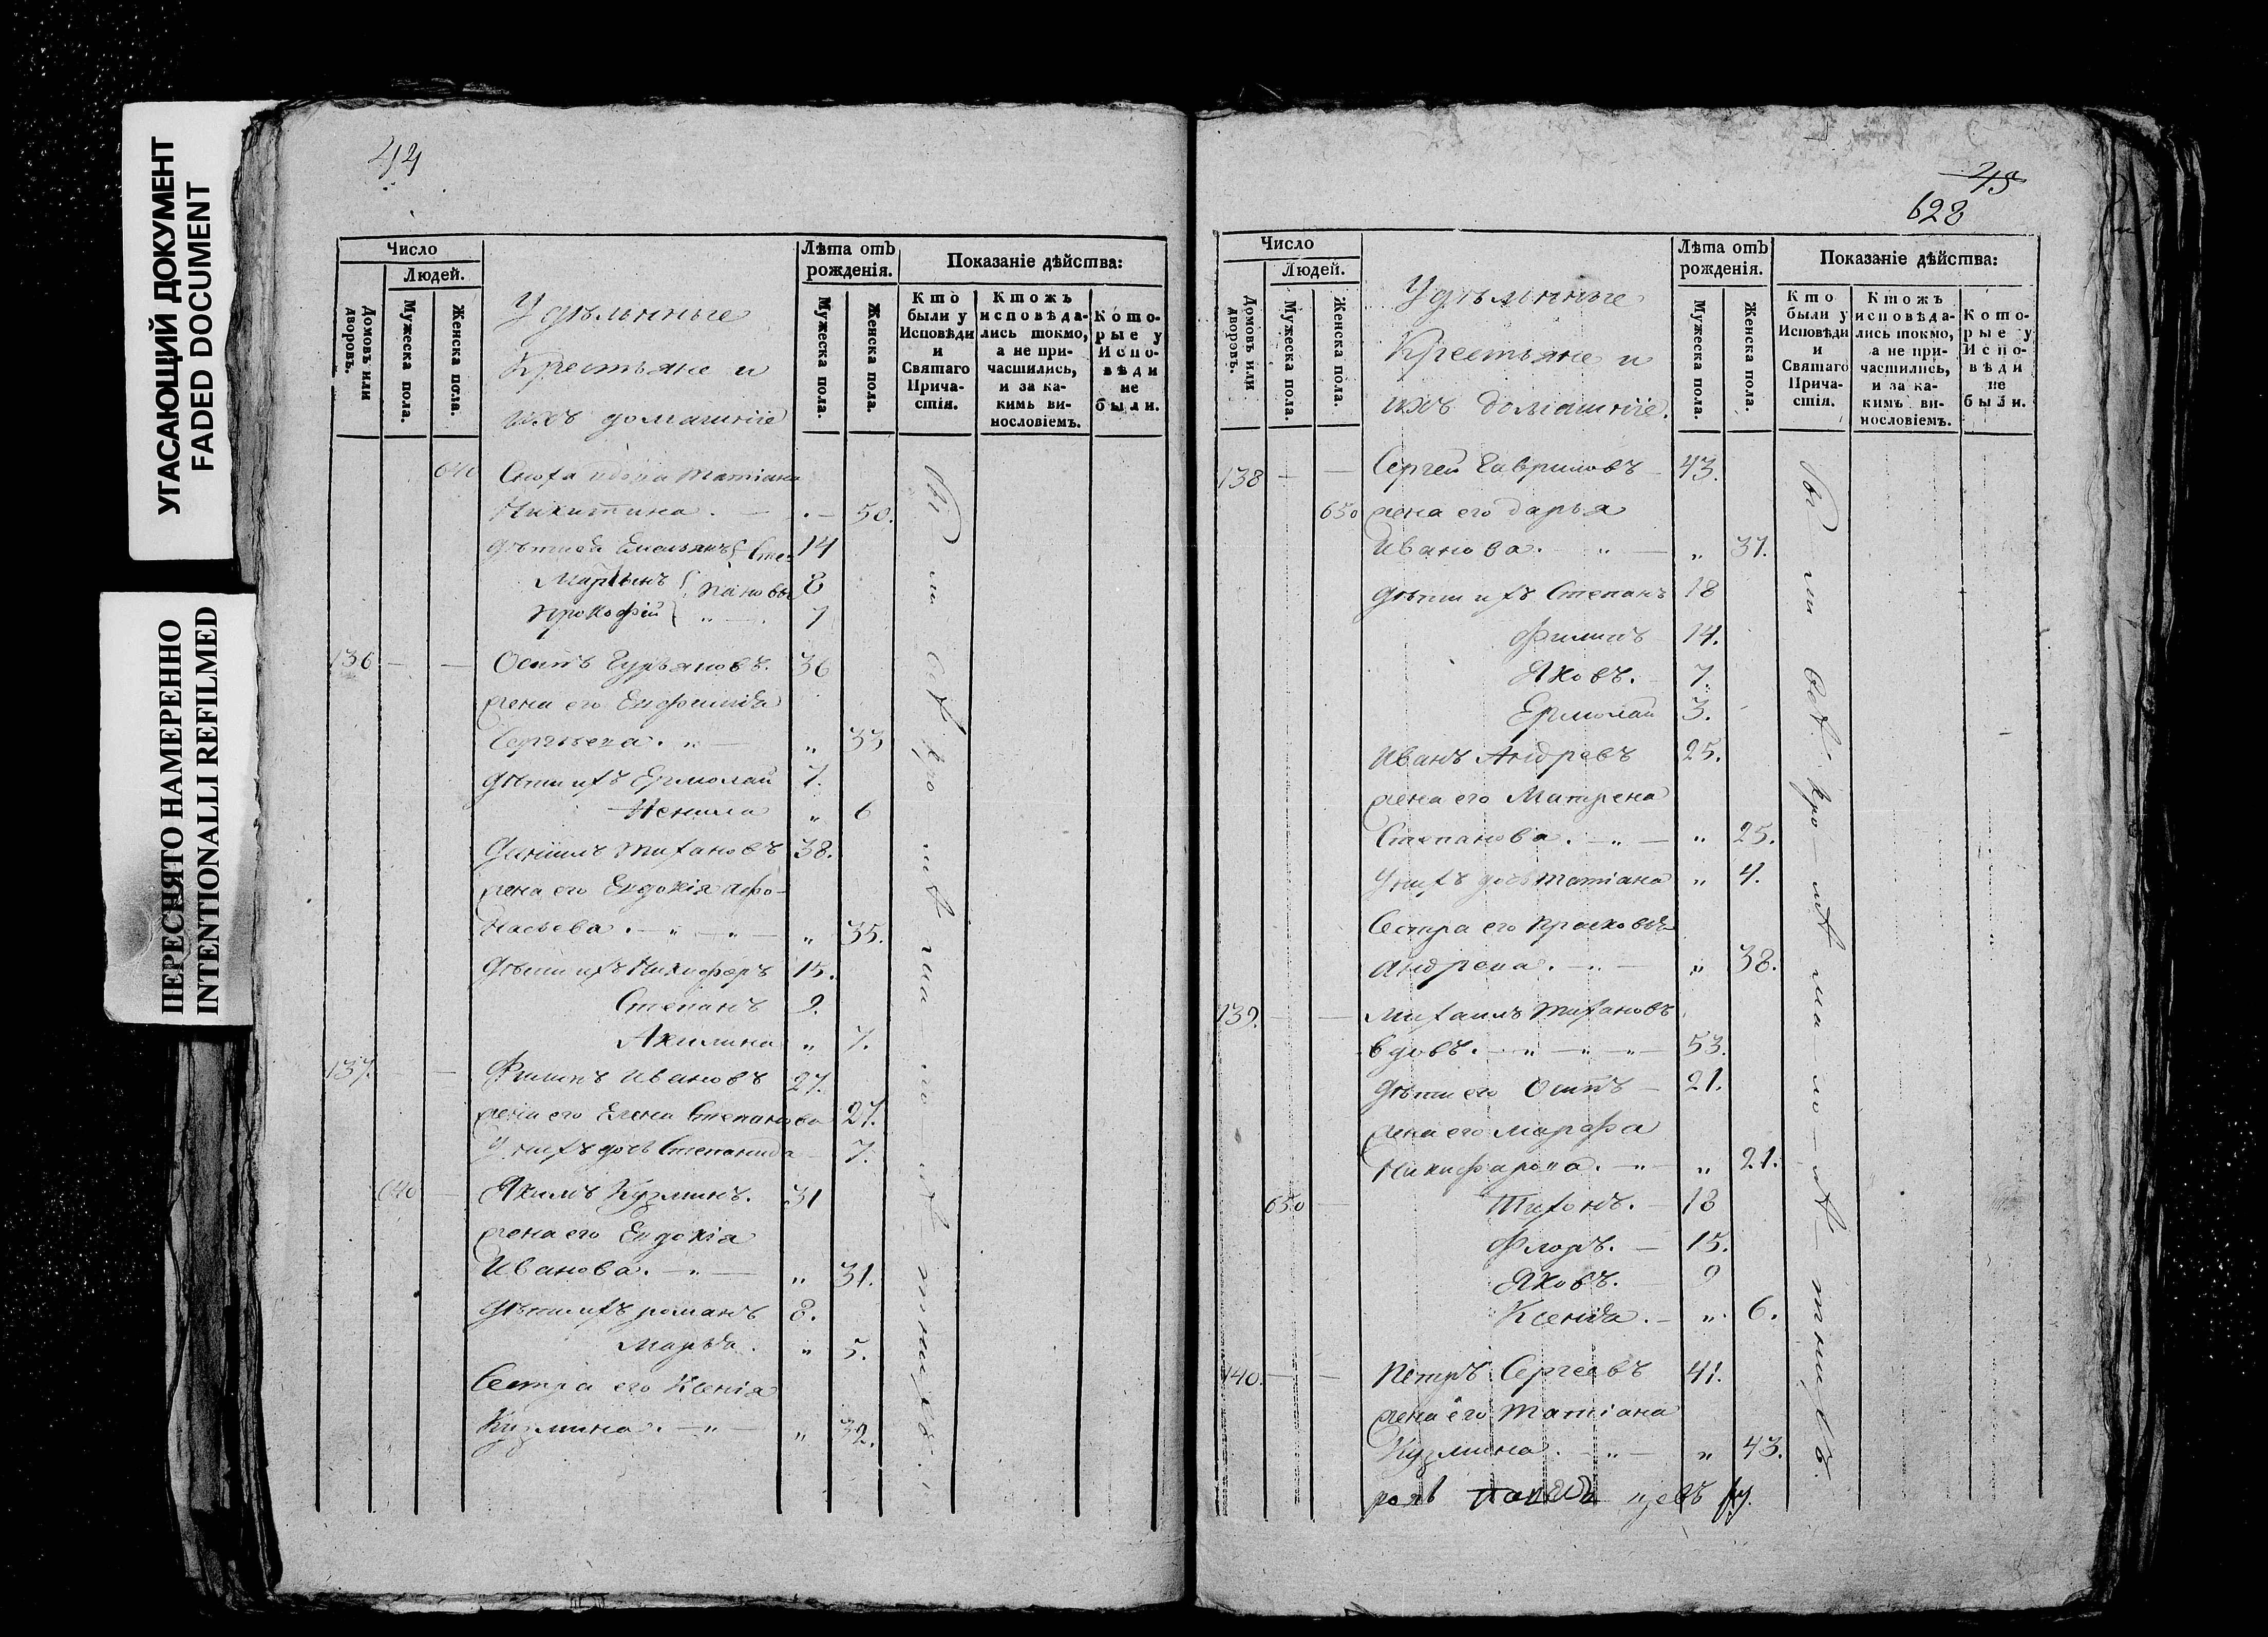 УГАСАЮЩИЙ ДОКУМЕНТ
FADED DOCUMENT
ПЕРЕСНЯТО НАМЕРЕННО
INTENTIONALLI REFILMED
44
Число
Людей.
Домовъ или дворовъ.
Мужеска пола.
Женска пола.
Удѣльнные
Крестьяне и
ихъ домашніе
Лѣта отъ рожденія.
Мужеска пола.
Женска пола.
Показаніе дѣйства:
Кто были у Исповѣди и Святаго Причастія.
Ктожъ исповѣдались токмо, а не причастились, и за какимъ винословіемъ.
Которые у Исповѣди не были.
640 Сноха вдова Татіана
Никитина . — . — 50.
дѣти ей Емельянъ Сте- 14
Мартынъ пановы 8
Прокофій „ — . 7
136 — — Осипъ Гурьяновъ. 36
жена его Евфимія
Сергѣева . „ — „ 33
дѣти ихъ Ермолай 7.
Ненила „ 6
Даніилъ Тихановъ 38.
жена его Евдокія Афо-
насьева . — „ — „ — „ 35.
дѣти ихъ Никифоръ 15.
Степанъ 9.
Акилина „ 7.
137. — — Филипъ Ивановъ 27.
жена его Елена Степанова 27.
У нихъ дочь Степанида — 7.
640 — Якимъ Кузминъ. 31
жена его Евдокія
Иванова. — „ — „ 31.
дѣти ихъ романъ 8.
Марья . „ 5.
Сестра его Ксенія
Кузмина . — „ — „ 32.
45
628
Число
Людей.
Домовъ или дворовъ.
Мужеска пола.
Женска пола.
Удѣльнные
Крестьяне и
ихъ домашніе.
Лѣта отъ рожденія.
Мужеска пола.
Женска пола.
Показаніе дѣйства:
Кто были у Исповѣди и Святаго Причастія.
Ктожъ исповѣдались токмо, а не причастились, и за какимъ винословіемъ.
Которые у Исповѣди не были.
138 — — Сергей Гавриловъ — 43.
650 жена его дарья
Иванова . „ — „ 37.
дѣти ихъ Степанъ 18
Филипъ 14.
Яковъ. — 7.
Ермолай 3.
Иванъ Андревъ 25.
жена его Матрена
Степанова . — „ — „ 25.
У нихъ дочь Татіана „ 4.
Сестра его Прасковья
Андрева . — „ — „ 38.
139. — — Михаилъ Тихановъ
вдовъ. — „ — „ — „ — 53.
дѣти его Осипъ — 21.
жена его Марфа
Никифарова. — „ — „ 21.
650 — Тихонъ. — 18
Флоръ. — 15.
Яковъ. — 9
Ксенія . — „ 6.
140. — — Петръ Сергеевъ 41.
жена его Татіана
Кузмина. „ — „ 43.